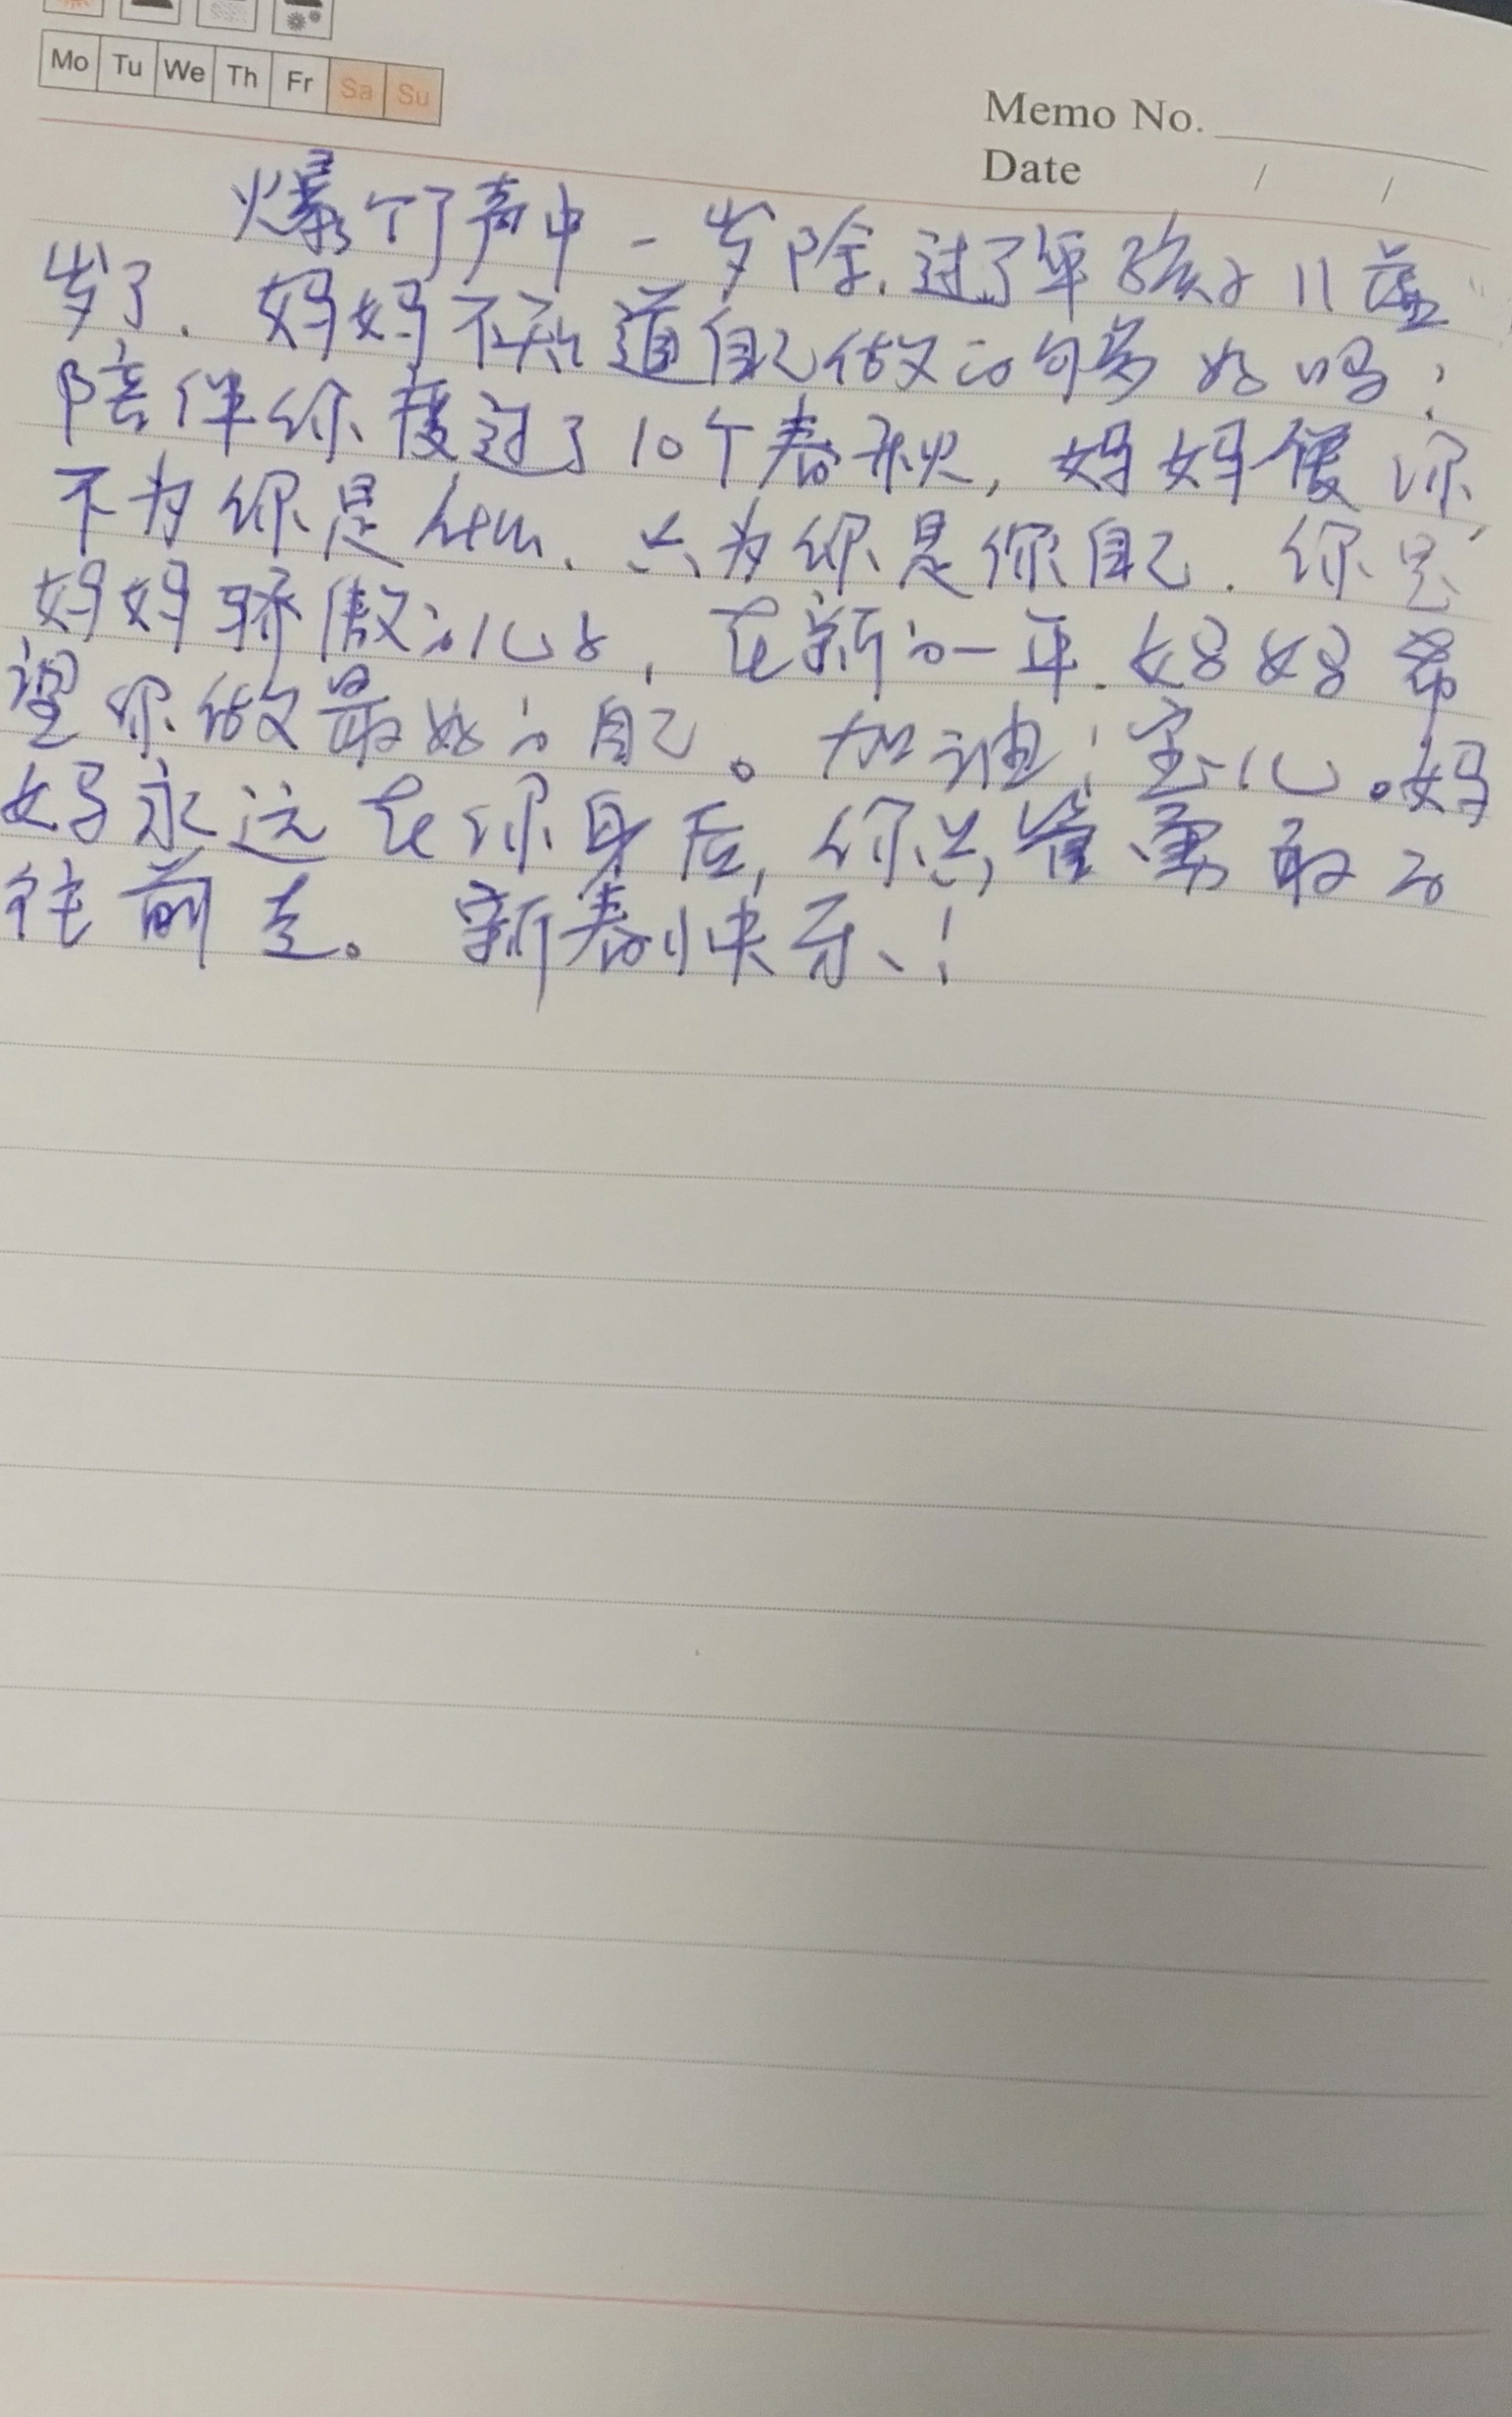 Mo Tu We Th Fr Sa Su
Memo No.
Date / /
爆竹声中一岁除.过了年孩子11虚
岁了.妈妈不知道自己做的够多好吗?
陪伴你度过了10个春秋,妈妈爱你
不为你是 .只为你是你自己.你是
妈妈骄傲的儿子,在新的一年.妈妈希
望你做最好的自己。加油!宝儿。妈
妈永远在你身后,你只管勇敢的
往前走。新春快乐!